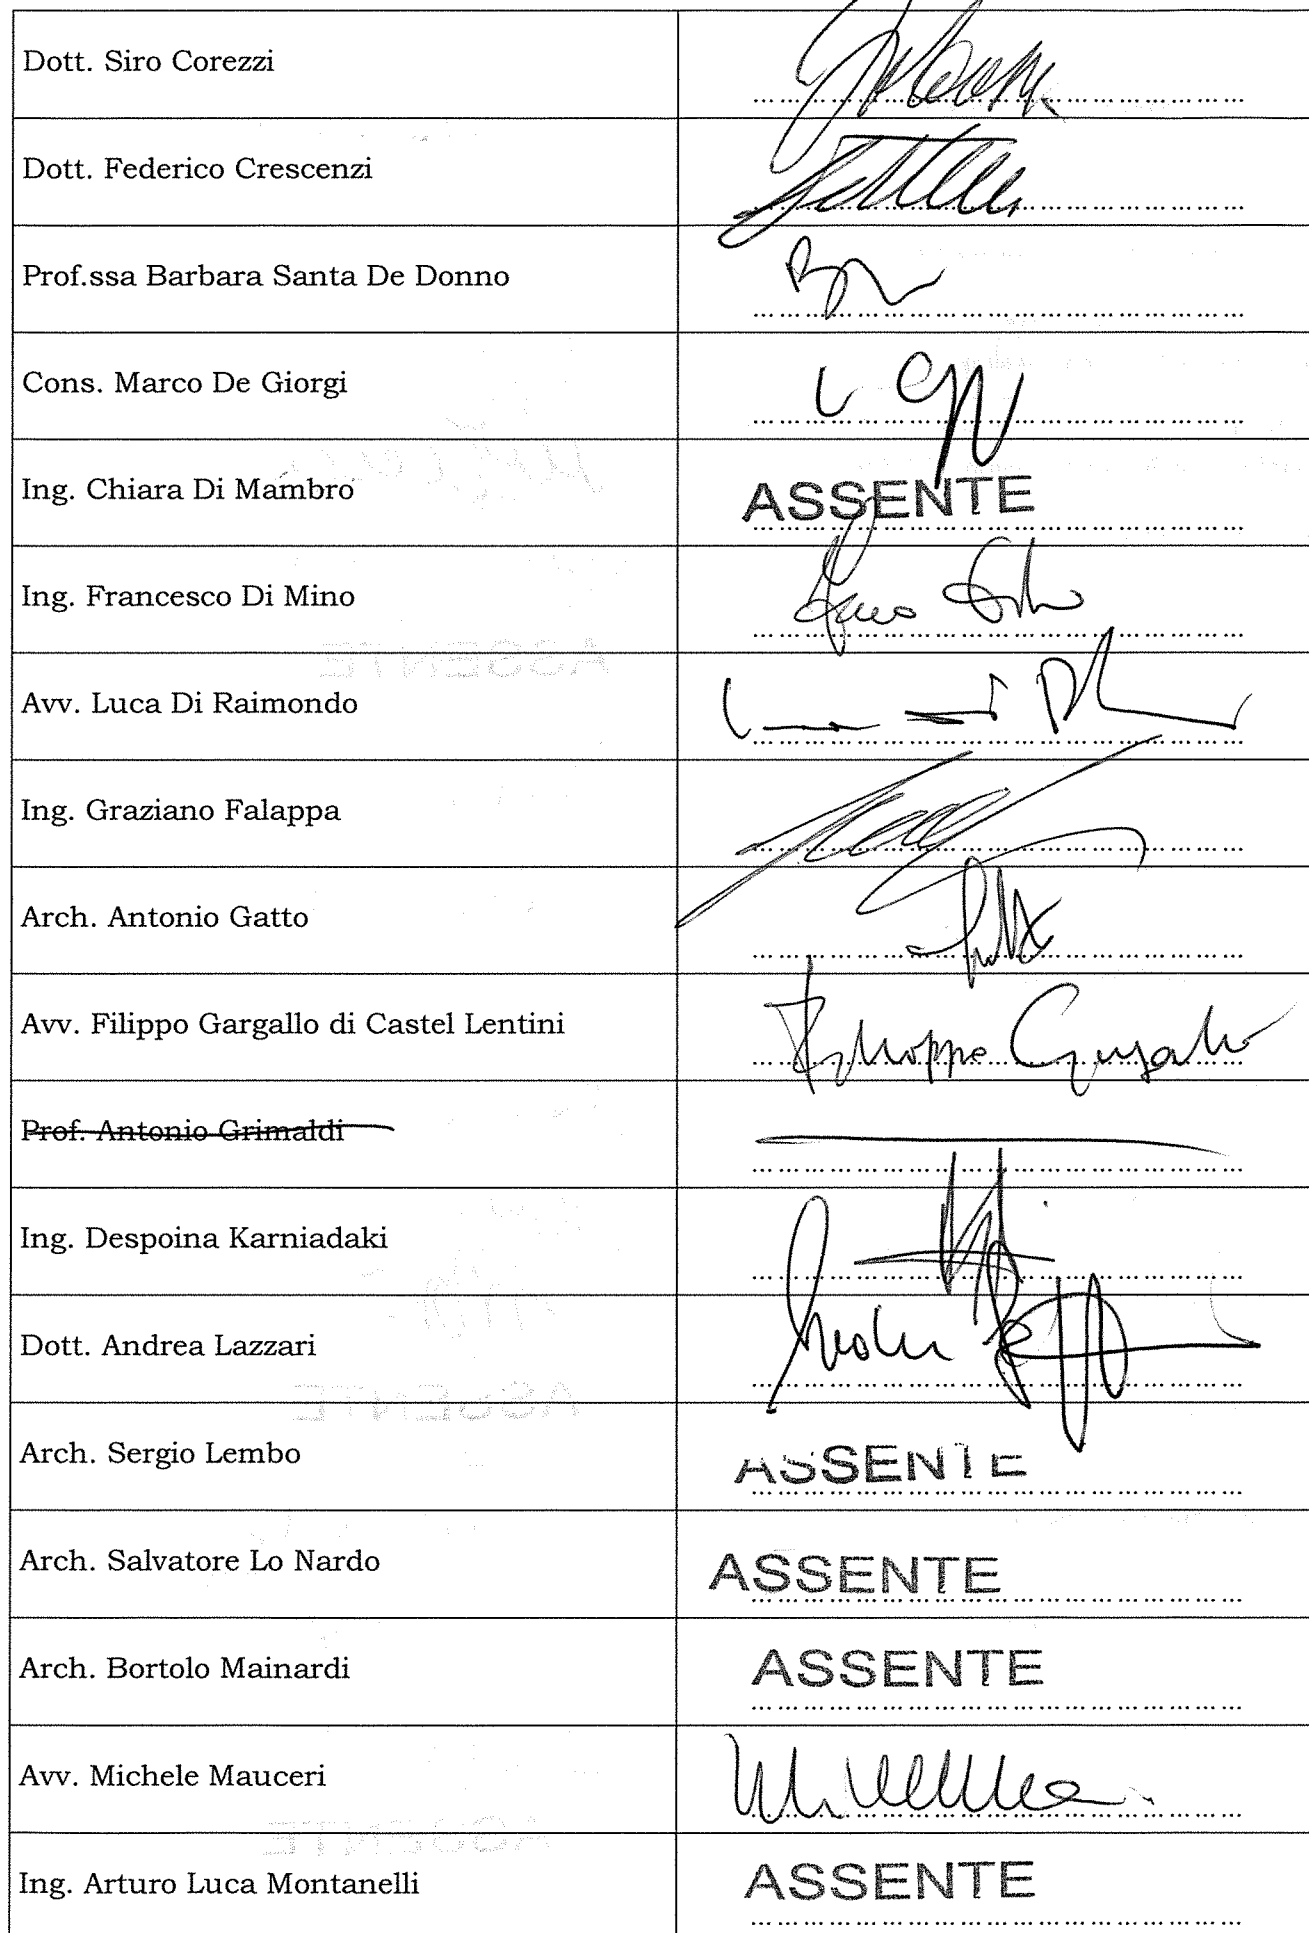 Dott. Siro Corezzi
Dott. Federico Crescenzi
Prof.ssa Barbara Santa De Donno
Cons. Marco De Giorgi
Ing. Chiara Di Mambro ASSENTE
Ing. Francesco Di Mino
Avv. Luca Di Raimondo
Ing. Graziano Falappa
Arch. Antonio Gatto
Avv. Filippo Gargallo di Castel Lentini Filippo Gargallo
Prof. Antonio Grimaldi
Ing. Despoina Karniadaki
Dott. Andrea Lazzari
Arch. Sergio Lembo ASSENTE
Arch. Salvatore Lo Nardo ASSENTE
Arch. Bortolo Mainardi ASSENTE
Avv. Michele Mauceri
Ing. Arturo Luca Montanelli ASSENTE